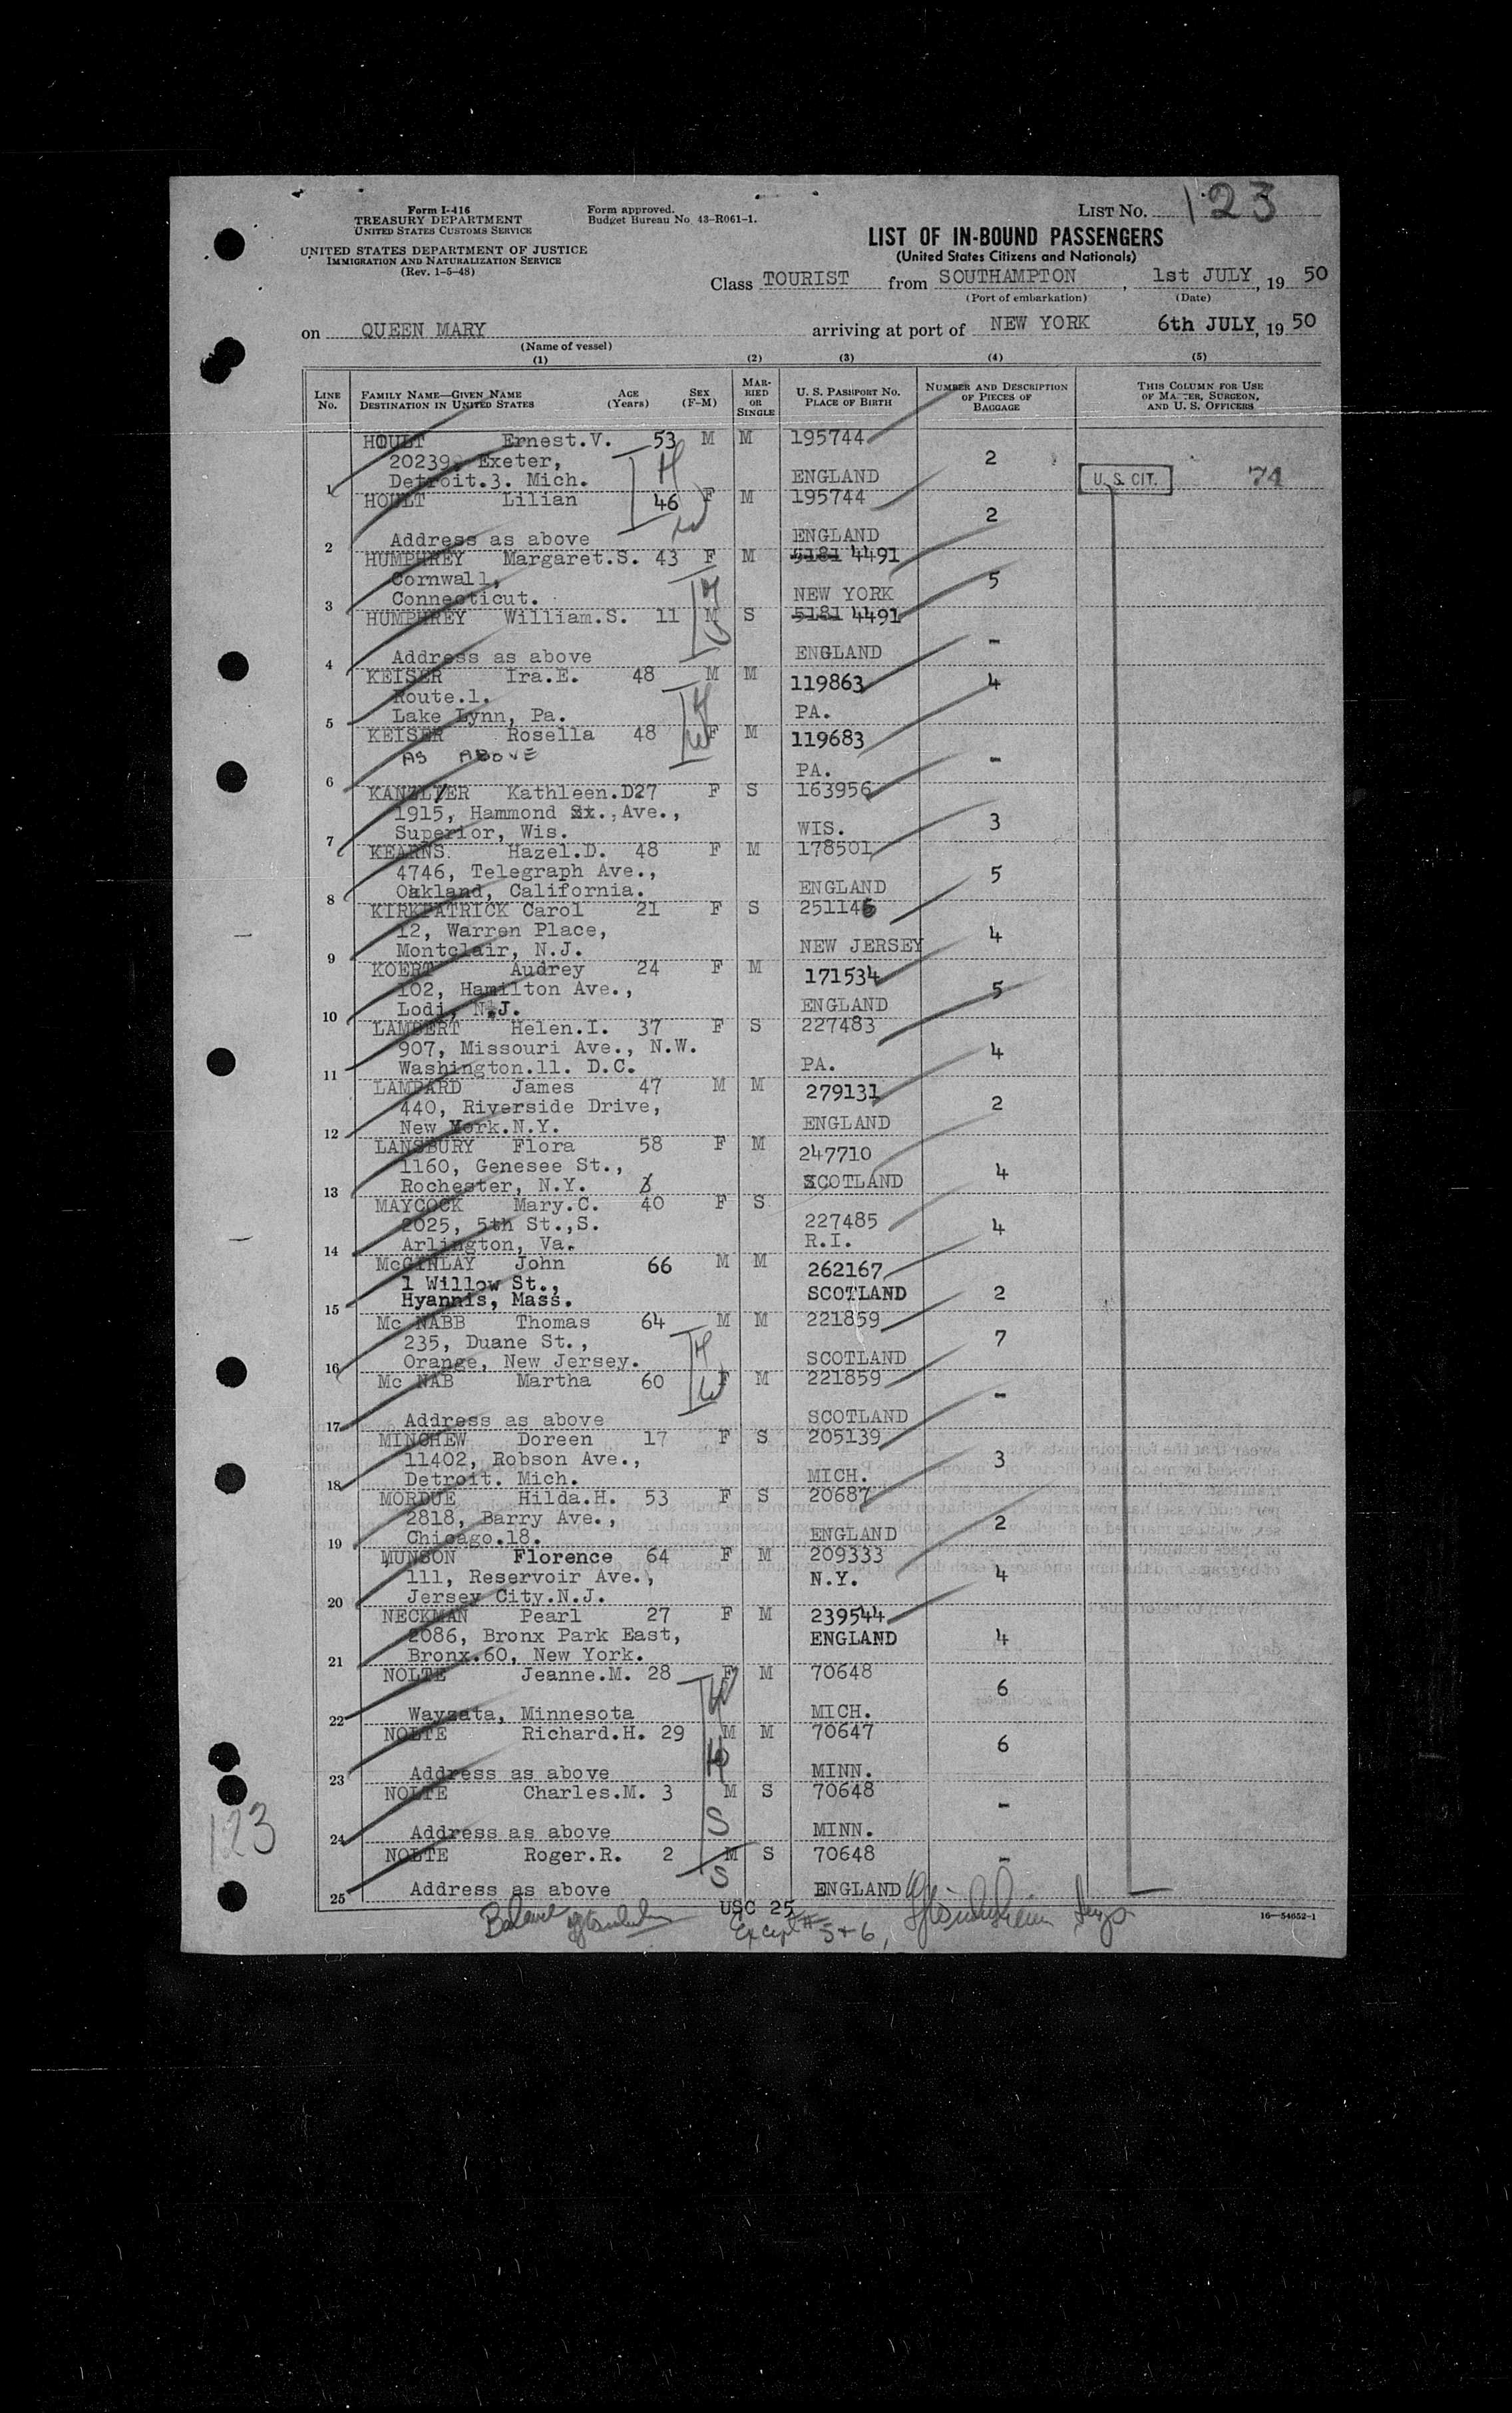 Form I-416
TREASURY DEPARTMENT
UNITED STATES CUSTOMS SERVICE
UNITED STATES DEPARTMENT OF JUSTICE
IMMIGRATION AND NATURALIZATION SERVICE
(Rev. 1-5-48)
Form approved.
Budget Bureau No. 43-R061-1.
LIST NO. 123
LIST OF IN-BOUND PASSENGERS
(United States Citizens and Nationals)
Class TOURIST from SOUTHAMPTON, 1st JULY, 19 50
(Port of embarkation) (Date)
on QUEEN MARY arriving at port of NEW YORK 6th JULY, 19 50
(Name of vessel)
(1) (2) (3) (4) (5)
LINE No. FAMILY NAME—GIVEN NAME DESTINATION IN UNITED STATES AGE (Years) SEX (F-M) MARRIED OR SINGLE U. S. PASSPORT NO. PLACE OF BIRTH NUMBER AND DESCRIPTION OF PIECES OF BAGGAGE THIS COLUMN FOR USE OF MASTER, SURGEON, AND U. S. OFFICERS
HOULT Ernest.V. 53 M M 195744
20239, Exeter, 2
1 Detroit.3. Mich. ENGLAND U. S. CIT. 74
HOULT Lilian 46 F M 195744
2
2 Address as above ENGLAND
HUMPHREY Margaret.S. 43 F M 5181 4491
Cornwall, 5
3 Connecticut. NEW YORK
HUMPHREY William.S. 11 M S 5181 4491
-
4 Address as above ENGLAND
KEISER Ira.E. 48 M M 119863 4
Route.1.
5 Lake Lynn, Pa. PA.
KEISER Rosella 48 F M 119683
AS ABOVE -
6 PA.
KANZLTER Kathleen.D 27 F S 163956
1915, Hammond St., Ave., 3
7 Superior, Wis. WIS.
KEARNS. Hazel.D. 48 F M 178501
4746, Telegraph Ave., 5
8 Oakland, California. ENGLAND
KIRKPATRICK Carol 21 F S 251146
12, Warren Place, 4
9 Montclair, N.J. NEW JERSEY
KOERT Audrey 24 F M 171534
102, Hamilton Ave., 5
10 Lodi, N.J. ENGLAND
LAMBERT Helen.I. 37 F S 227483
907, Missouri Ave., N.W. 4
11 Washington.11. D.C. PA.
LAMPARD James 47 M M 279131
440, Riverside Drive, 2
12 New York.N.Y. ENGLAND
LANSBURY Flora 58 F M 247710
1160, Genesee St., 4
13 Rochester, N.Y. SCOTLAND
MAYCOCK Mary.C. 40 F S
2025, 5th St.,S. 227485 4
14 Arlington, Va. R.I.
McGINLAY John 66 M M 262167
1 Willow St., SCOTLAND 2
15 Hyannis, Mass.
Mc NABB Thomas 64 M M 221859
235, Duane St., 7
16 Orange, New Jersey. SCOTLAND
Mc NAB Martha 60 F M 221859
-
17 Address as above SCOTLAND
MINCHEW Doreen 17 F S 205139
11402, Robson Ave., 3
18 Detroit. Mich. MICH.
MORDUE Hilda.H. 53 F S 20687
2818, Barry Ave., 2
19 Chicago.18. ENGLAND
MUNSON Florence 64 F M 209333
111, Reservoir Ave., N.Y. 4
20 Jersey City.N.J.
NECKMAN Pearl 27 F M 239544
2086, Bronx Park East, ENGLAND 4
21 Bronx.60, New York.
NOLTE Jeanne.M. 28 F M 70648
6
22 Wayzata, Minnesota MICH.
NOLTE Richard.H. 29 M M 70647
6
23 Address as above MINN.
NOLTE Charles.M. 3 M S 70648
-
24 Address as above MINN.
NOLTE Roger.R. 2 M S 70648
-
25 Address as above ENGLAND
123
USC 25
Balance Except # 5 + 6,
16—54652-1